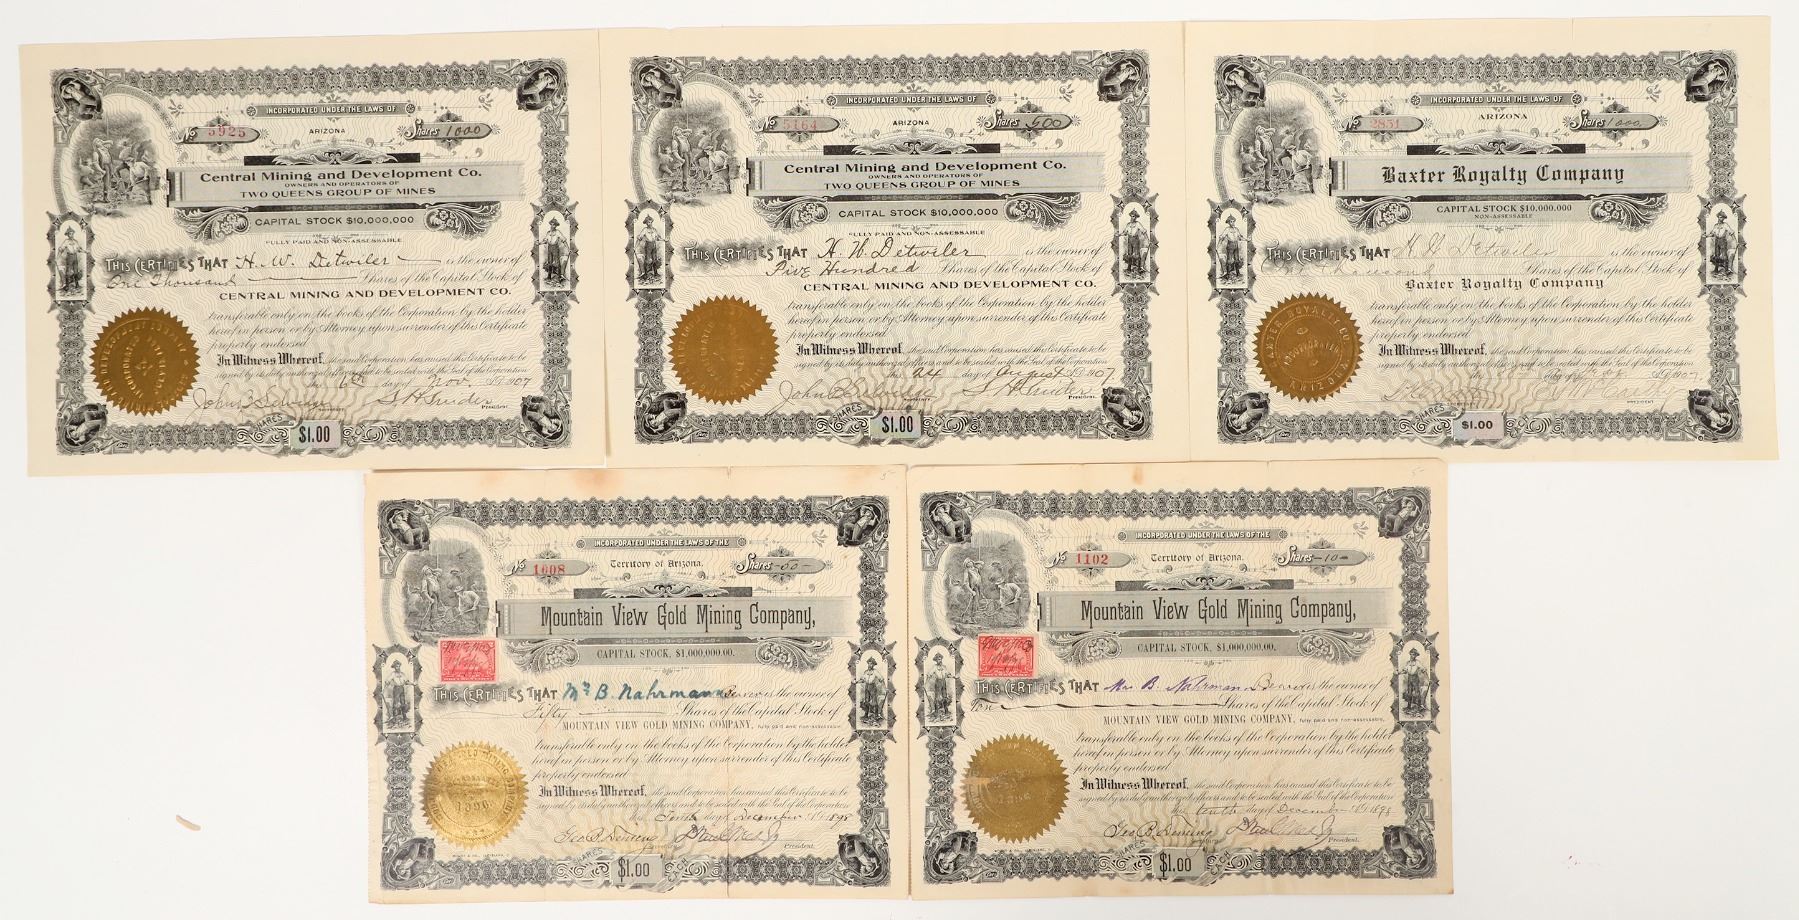 INCORPORATED UNDER THE LAWS OF
No 5925 ARIZONA Shares 1000
Central Mining and Development Co.
OWNERS AND OPERATORS OF
TWO QUEENS GROUP OF MINES
CAPITAL STOCK $10,000,000
FULLY PAID AND NON-ASSESSABLE
THIS CERTIFIES THAT H. W. Detwiler is the owner of
One Thousand Shares of the Capital Stock of
CENTRAL MINING AND DEVELOPMENT CO.
transferable only on the books of the Corporation by the holder
hereof in person or by Attorney upon surrender of this Certificate
properly endorsed.
In Witness Whereof, the said Corporation has caused this Certificate to be
signed by its duly authorized officers and to be sealed with the Seal of the Corporation
this 6th day of Nov. A.D. 1907
S. H. Snider
President.
SHARES $1.00
INCORPORATED UNDER THE LAWS OF
No 5164 ARIZONA Shares 500
Central Mining and Development Co.
OWNERS AND OPERATORS OF
TWO QUEENS GROUP OF MINES
CAPITAL STOCK $10,000,000
FULLY PAID AND NON-ASSESSABLE
THIS CERTIFIES THAT H. W. Detwiler is the owner of
Five Hundred Shares of the Capital Stock of
CENTRAL MINING AND DEVELOPMENT CO.
transferable only on the books of the Corporation by the holder
hereof in person or by Attorney upon surrender of this Certificate
properly endorsed.
In Witness Whereof, the said Corporation has caused this Certificate to be
signed by its duly authorized officers and to be sealed with the Seal of the Corporation
this day of August A.D. 1907
S. H. Snider
President.
SHARES $1.00
INCORPORATED UNDER THE LAWS OF
No 2851 ARIZONA Shares 1000
Baxter Royalty Company
CAPITAL STOCK $10,000,000
NON-ASSESSABLE
THIS CERTIFIES THAT H. W. Detwiler is the owner of
One Thousand Shares of the Capital Stock of
Baxter Royalty Company
transferable only on the books of the Corporation by the holder
hereof in person or by Attorney upon surrender of this Certificate
properly endorsed.
In Witness Whereof, the said Corporation has caused this Certificate to be
signed by its duly authorized officers and to be sealed with the Seal of the Corporation
day of A.D. 1907
PRESIDENT
BAXTER ROYALTY CO.
INCORPORATED
ARIZONA
SHARES $1.00
5-
INCORPORATED UNDER THE LAWS OF THE
No 1008 Territory of Arizona. Shares -50-
Mountain View Gold Mining Company,
CAPITAL STOCK, $1,000,000.00.
THIS CERTIFIES THAT Mrs B. Nahrmann is the owner of
Fifty Shares of the Capital Stock of
MOUNTAIN VIEW GOLD MINING COMPANY, fully paid and non-assessable,
transferable only on the books of the Corporation by the holder
hereof in person or by Attorney upon surrender of this Certificate
properly endorsed.
In Witness Whereof, the said Corporation has caused this Certificate to be
signed by its duly authorized officers and to be sealed with the Seal of the Corporation
this Tenth day of December A.D. 1898
Geo. B. Deming
President.
1896
SHARES $1.00 EACH
5-
INCORPORATED UNDER THE LAWS OF THE
No 1102 Territory of Arizona. Shares -10-
Mountain View Gold Mining Company,
CAPITAL STOCK, $1,000,000.00.
THIS CERTIFIES THAT Mrs B. Nahrmann is the owner of
Ten Shares of the Capital Stock of
MOUNTAIN VIEW GOLD MINING COMPANY, fully paid and non-assessable,
transferable only on the books of the Corporation by the holder
hereof in person or by Attorney upon surrender of this Certificate
properly endorsed.
In Witness Whereof, the said Corporation has caused this Certificate to be
signed by its duly authorized officers and to be sealed with the Seal of the Corporation
this tenth day of December A.D. 1898
Geo. B. Deming
Secretary. President.
SHARES $1.00 EACH